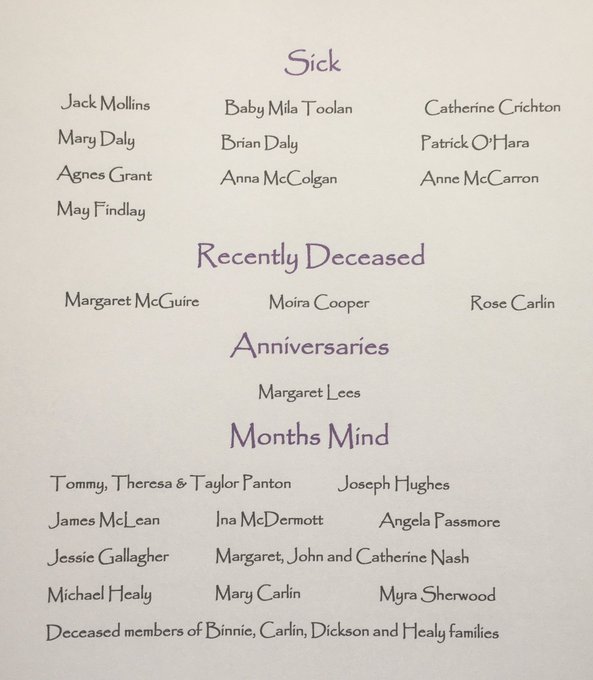 Sick
Jack Mollins Baby Mila Toolan Catherine Crichton
Mary Daly Brian Daly Patrick O'Hara
Agnes Grant Anna McColgan Anne McCarron
May Findlay
Recently Deceased
Margaret McGuire Moira Cooper Rose Carlin
Anniversaries
Margaret Lees
Months Mind
Tommy, Theresa & Taylor Panton Joseph Hughes
James McLean Ina McDermott Angela Passmore
Jessie Gallagher Margaret, John and Catherine Nash
Michael Healy Mary Carlin Myra Sherwood
Deceased members of Binnie, Carlin, Dickson and Healy families